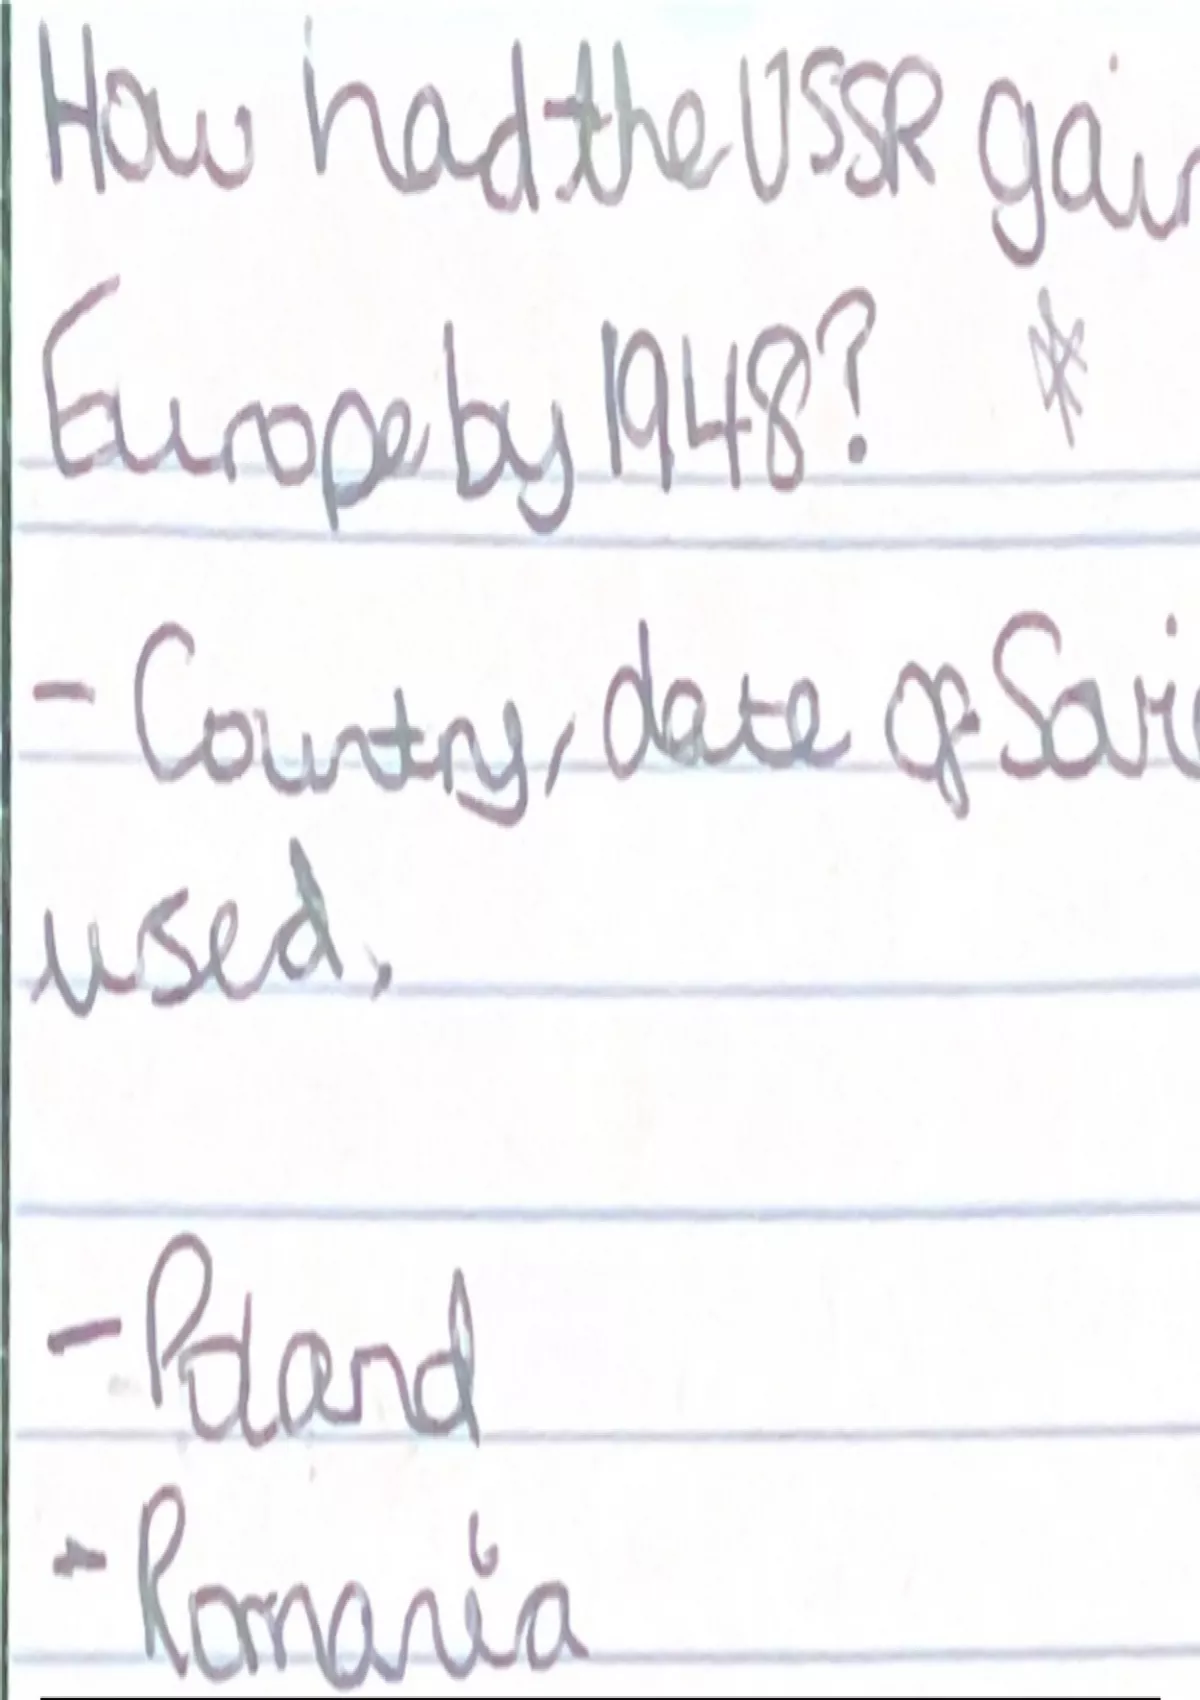 How had the USSR gain
Europe by 1948? *
- Country, date of Sovie
used.
- Poland
- Romania